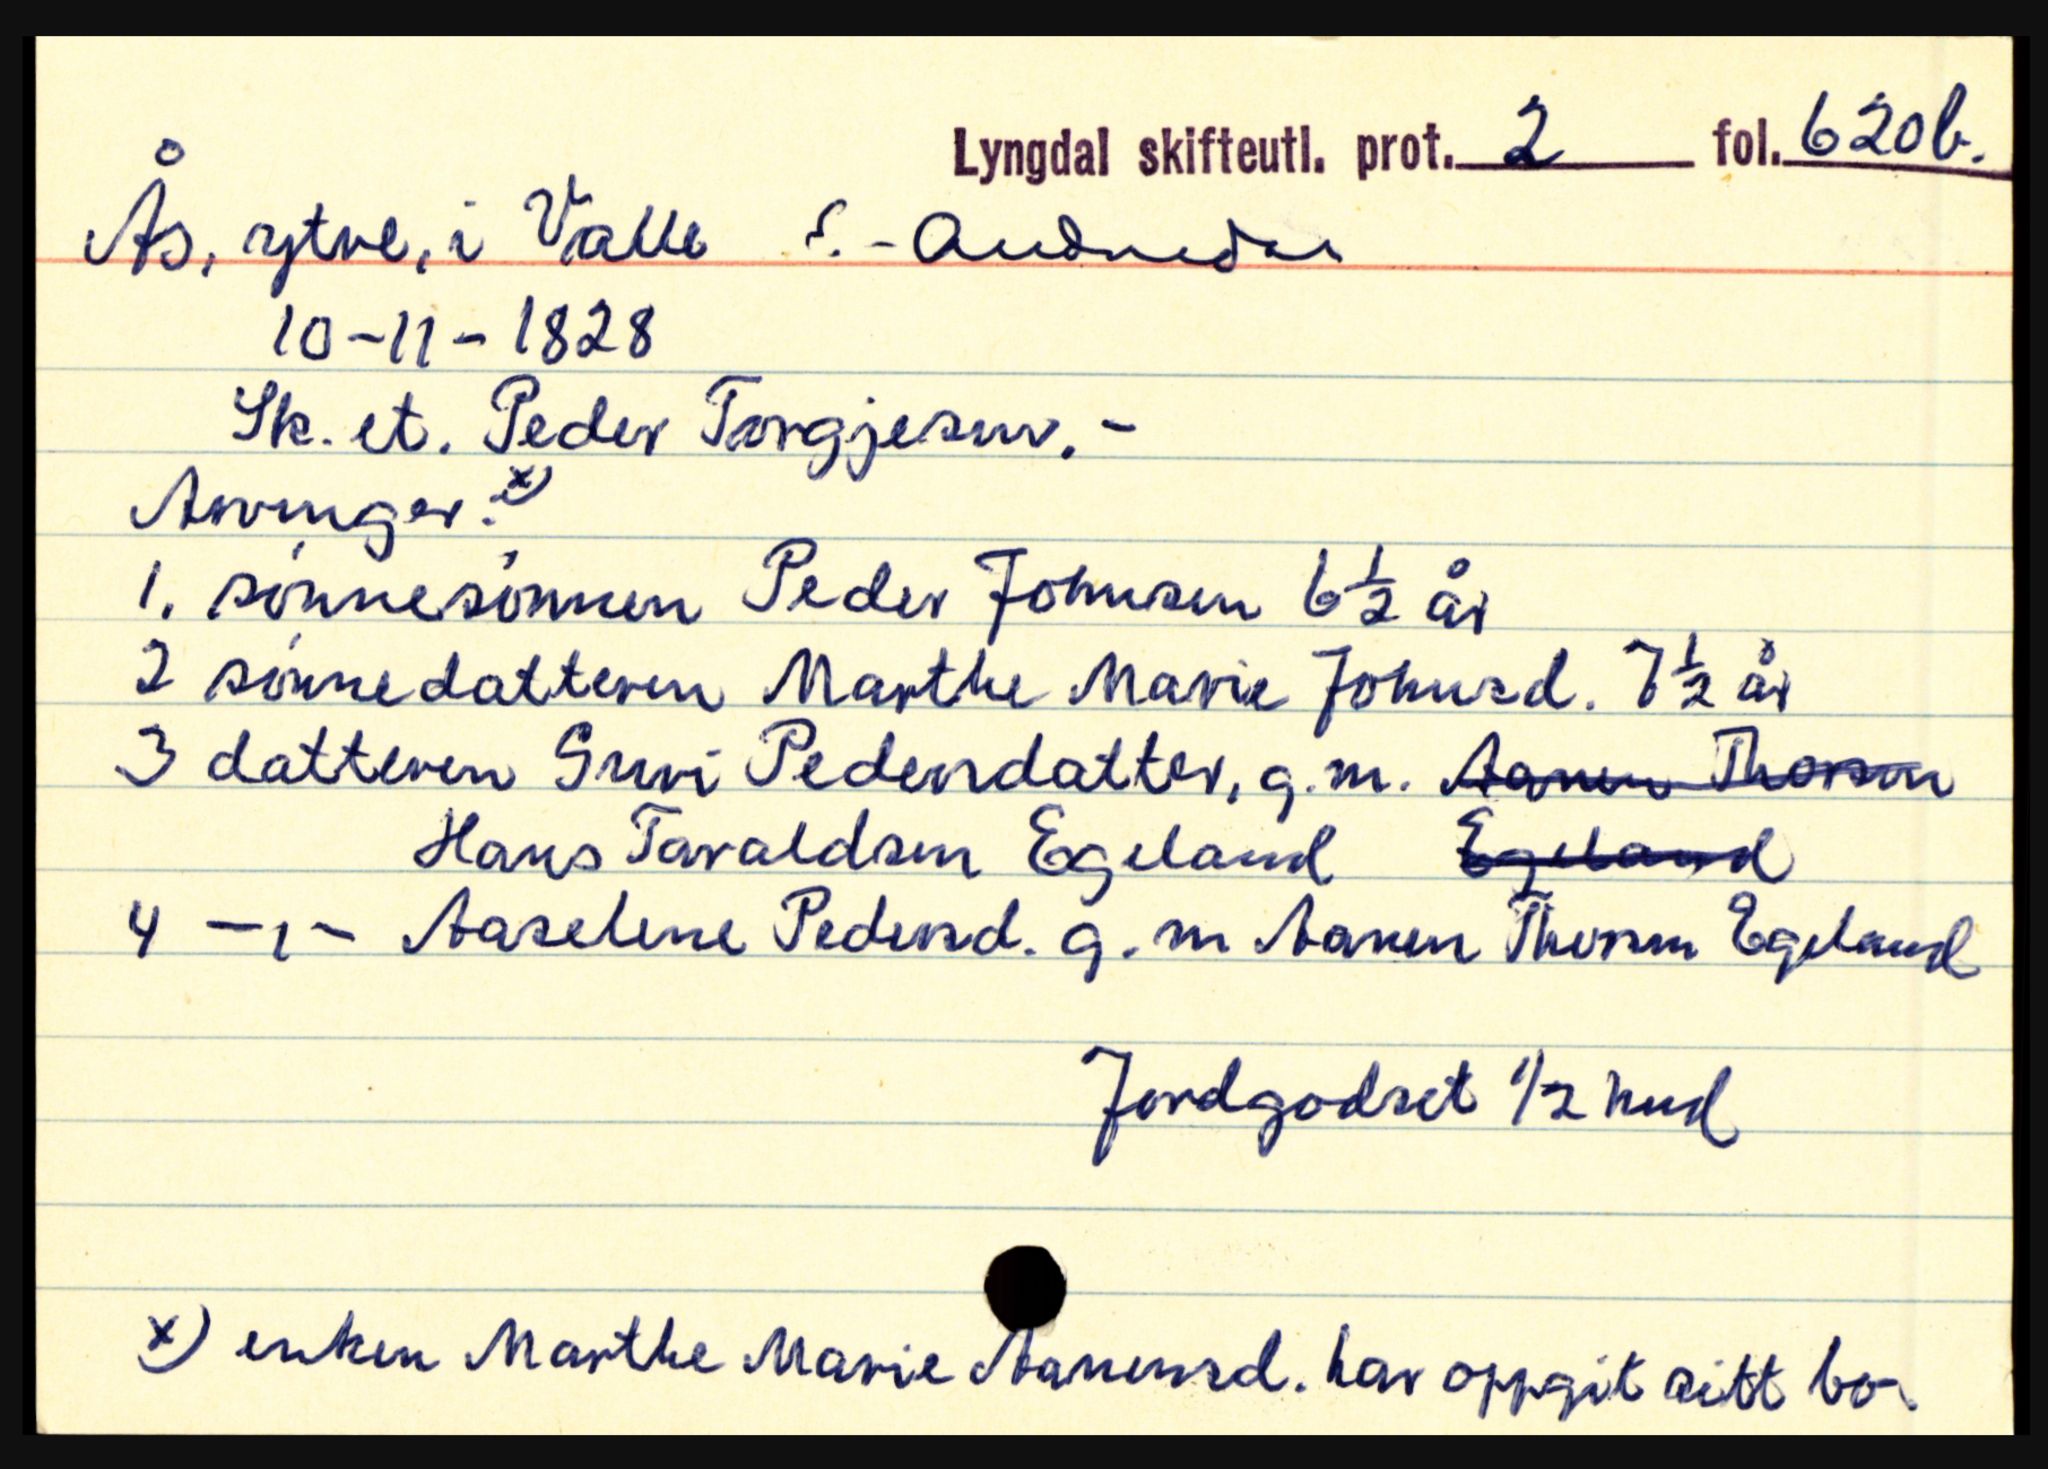 Lyngdal skifteutl. prot. 2 fol. 620b.
Ås, ytre, i Valle S. - Audnedal
10-11-1828
Sk. et. Peder Torgjesen. -
Arvinger: x)
1. sónnesónnen Peder Johnsen 6 1/2 år
2 sónnedatteren Marthe Marie Johnsd. 7 1/2 år
3 datteren Guri Pedersdatter, g.m. Aanen Thorsen
Hans Taraldsen Egeland Egeland
4 -"- Aaselene Pedersd. g.m Aanen Thorsen Egeland
Jordgodset 1/2 hud
x) enken Marthe Marie Aanensd. har oppgit sitt bo.